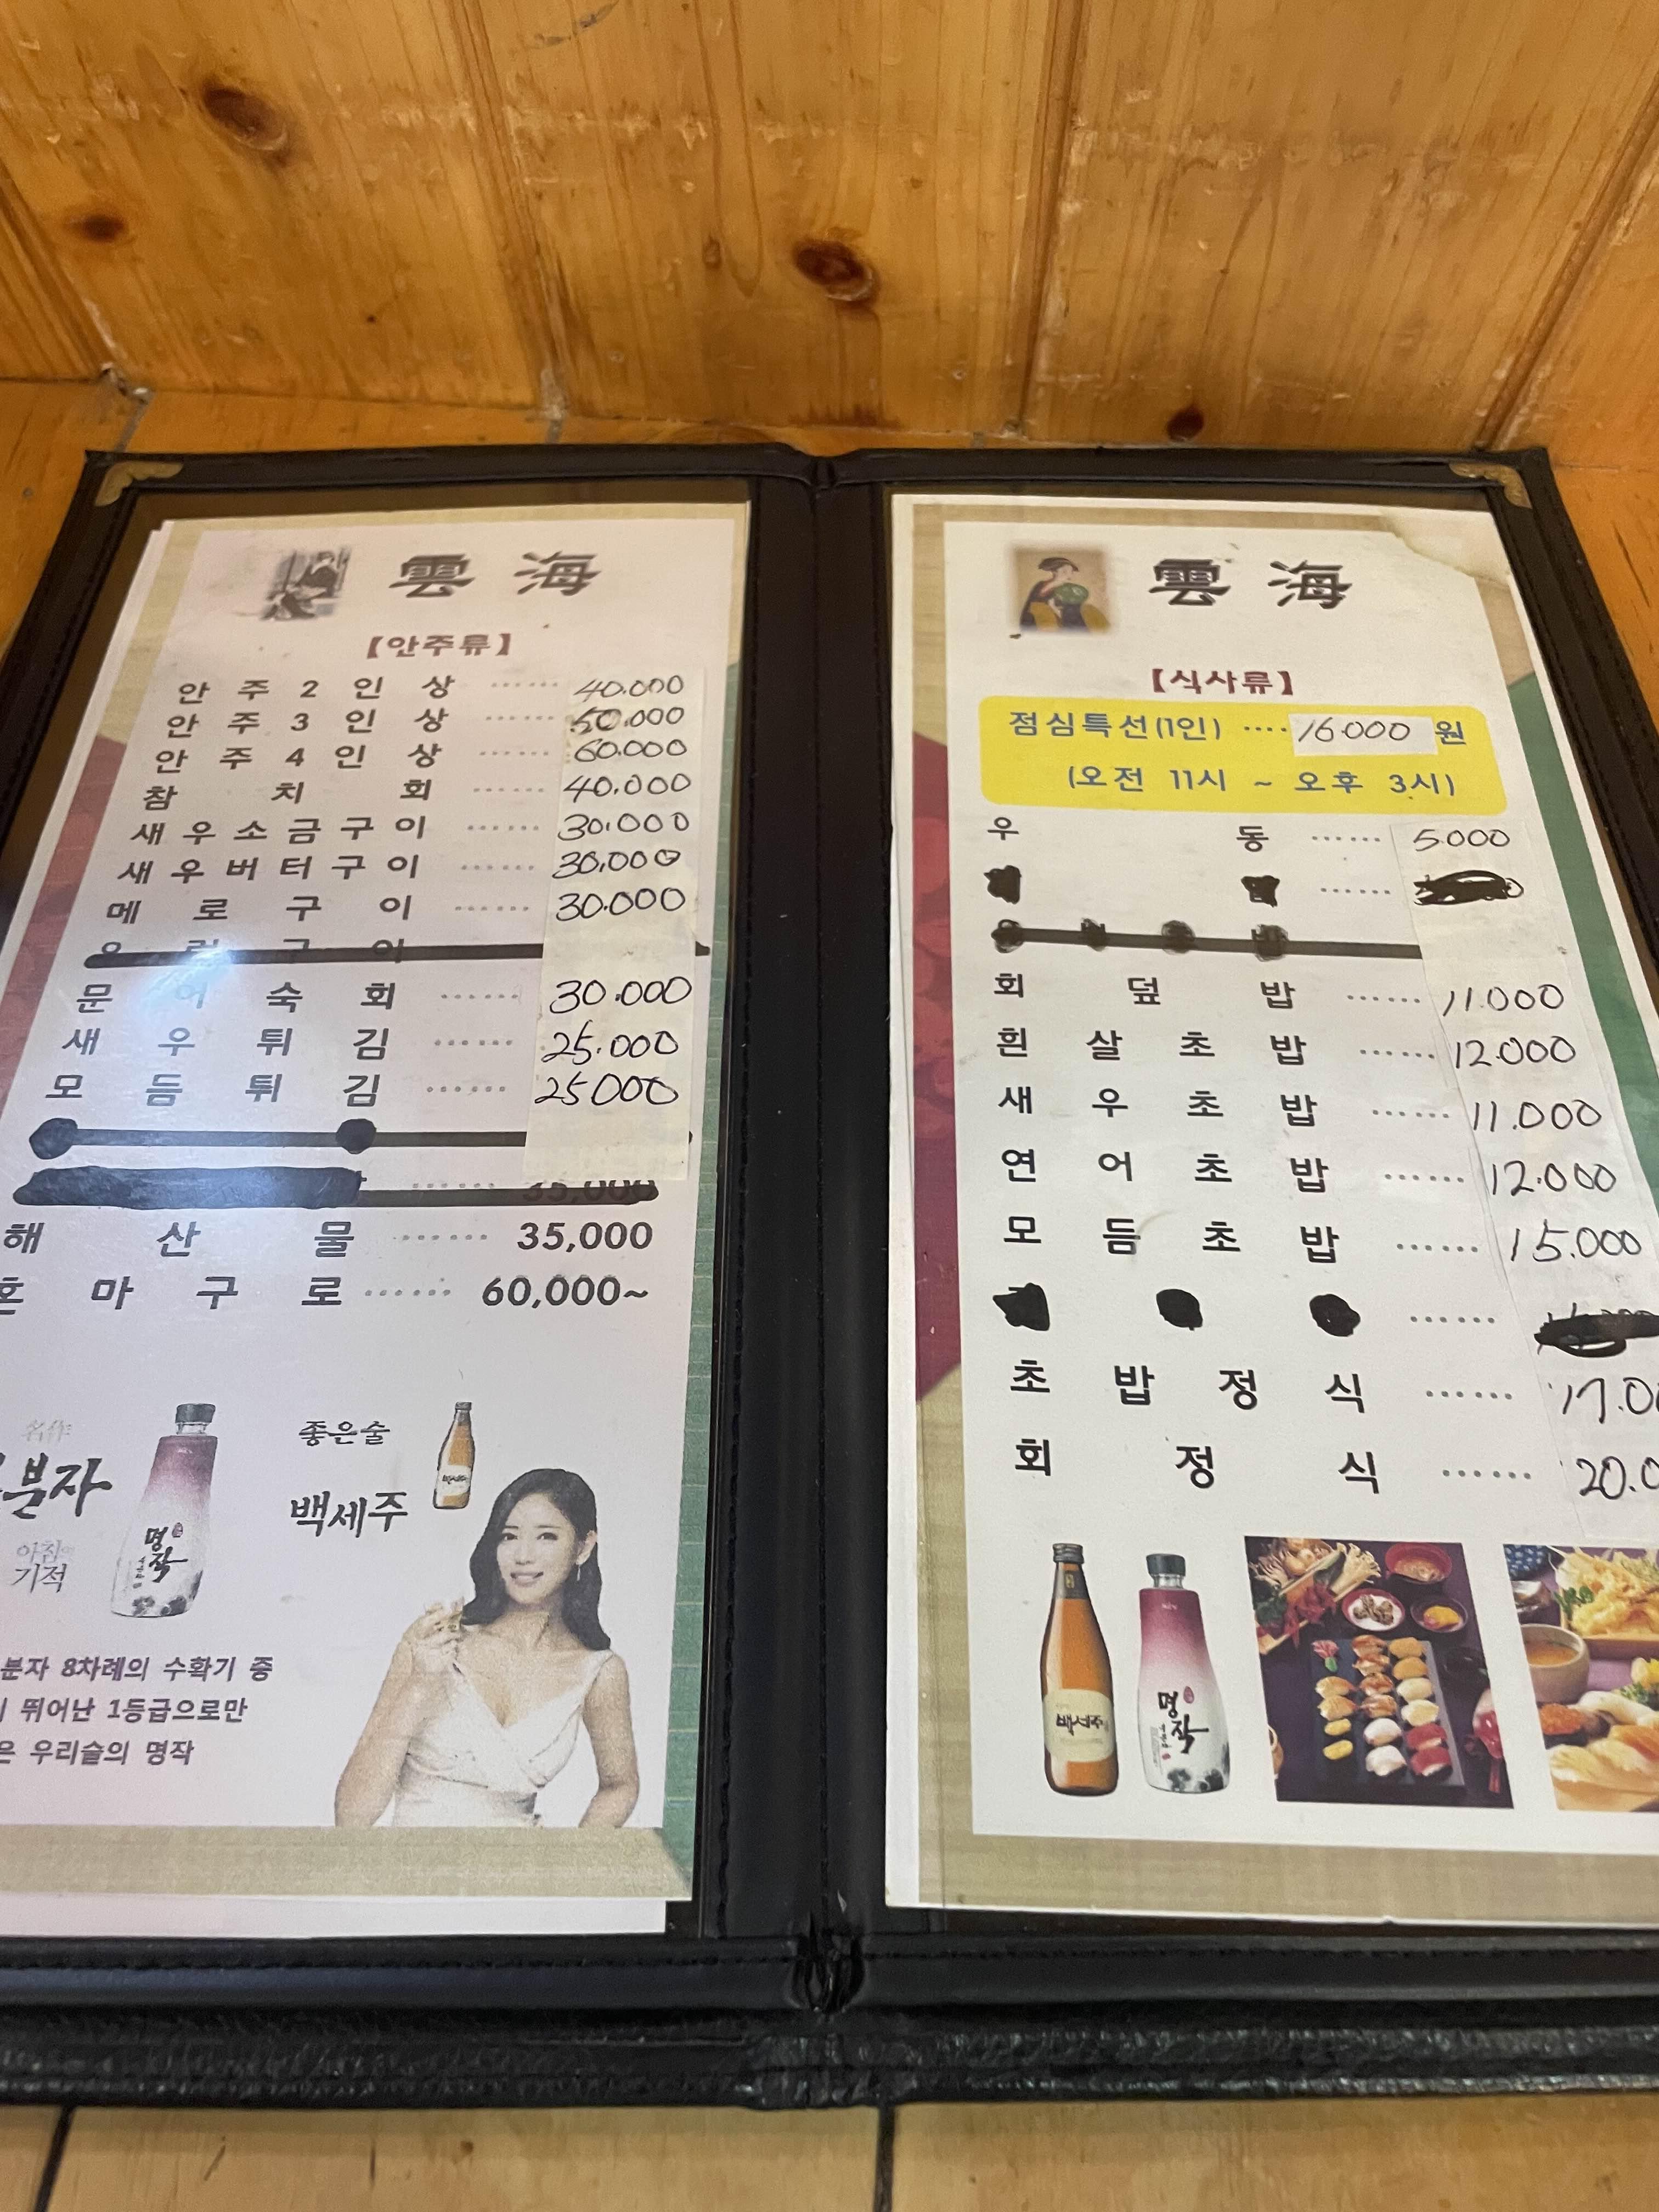 雲海
【안주류】
안주2인상 ······ 40.000
안주3인상 ······ 50.000
안주4인상 ······ 60.000
참치회 ······ 40.000
새우소금구이 ······ 30.000
새우버터구이 ······ 30,000
메로구이 ······ 30.000
문어숙회 ······ 30.000
새우튀김 ······ 25.000
모듬튀김 ······ 25000
35,000
해산물 ······ 35,000
혼마구로 ······ 60,000~
名作
분자
아침
기적
명작
좋은술
백세주
분자 8차례의 수확기 중
뛰어난 1등급으로만
은 우리술의 명작
雲海
【식사류】
점심특선(1인) ···· 16.000 원
(오전 11시 ~ 오후 3시)
우동 ······ 5.000
회덮밥 ······ 11.000
흰살초밥 ······ 12.000
새우초밥 ······ 11.000
연어초밥 ······ 12.000
모듬초밥 ······ 15.000
초밥정식 ······ 17.00
회정식 ······ 20.0
백세주
명작